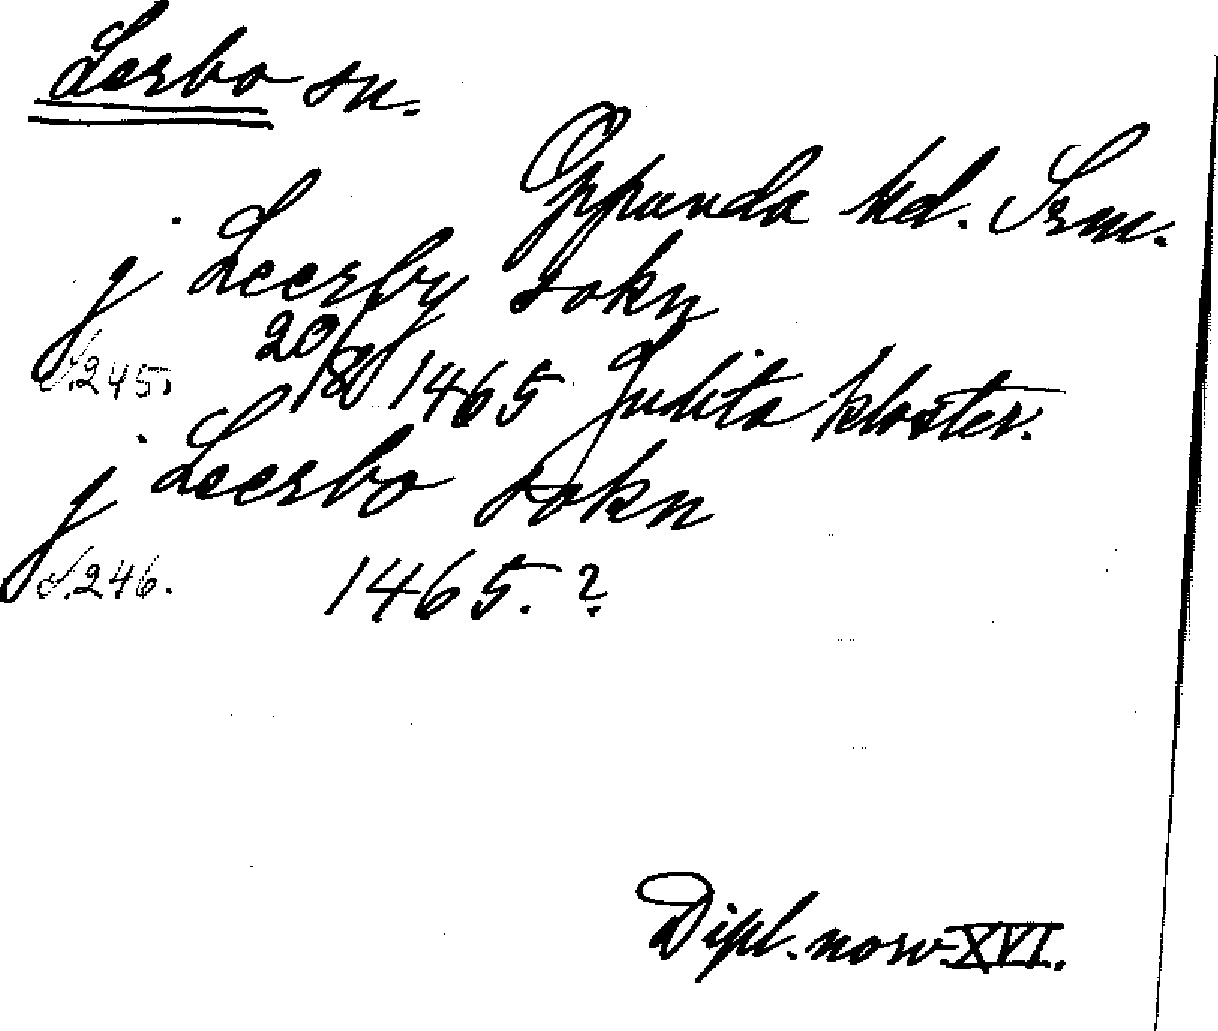 Lerbo sn.
Oppunda hd. Srm.
j Leerby sokn
s. 245. 20/12 1465 Julita kloster.
j Leerbo sokn
s. 246. 1465. ?
Dipl. norv. XVI.